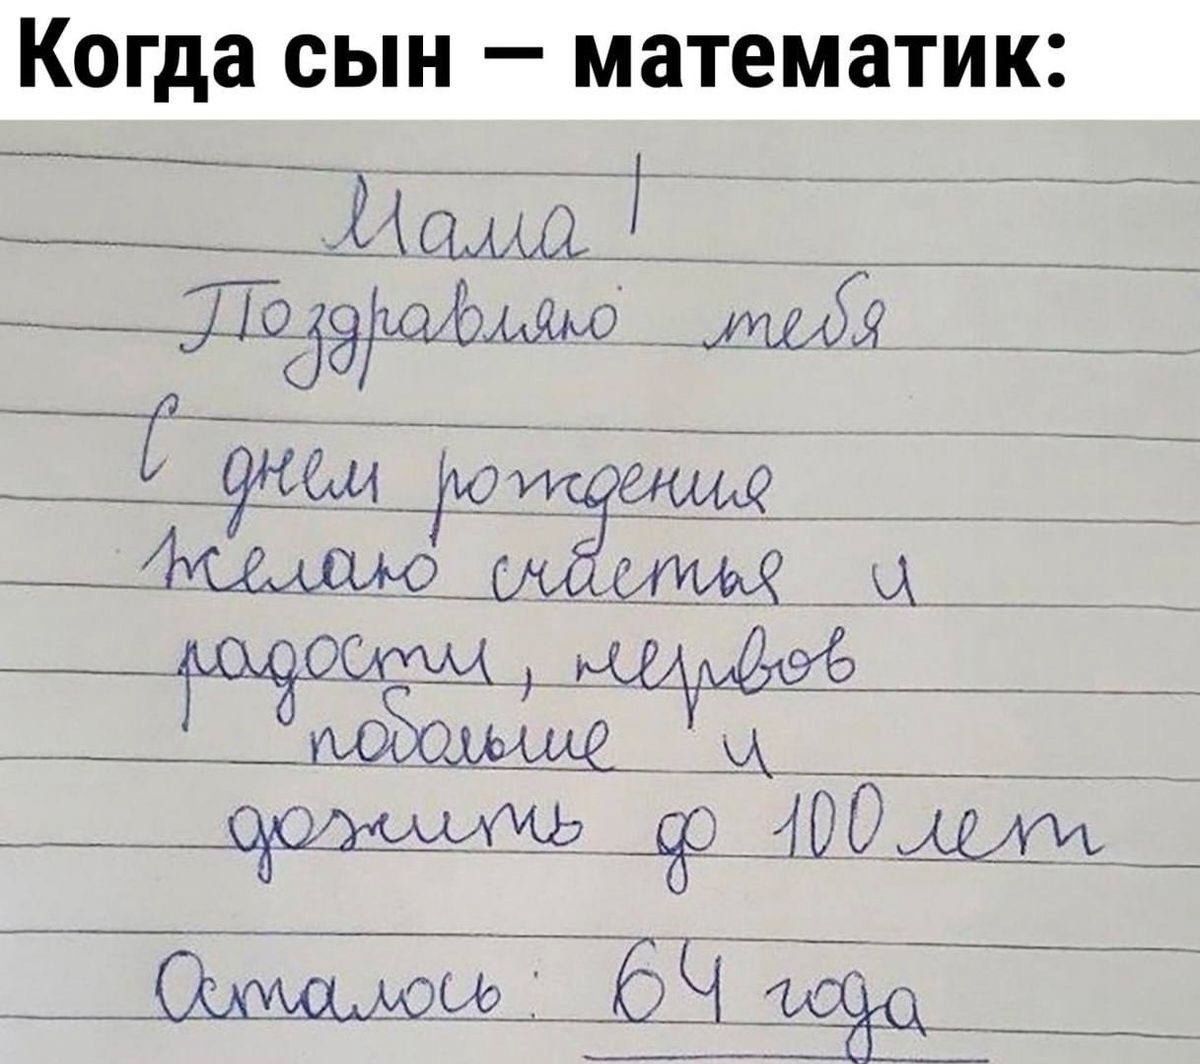 Когда сын – математик:
Мама!
Поздравляю тебя
С днем рождения
желаю счастья и
радости, нервов
побольше и
дожить до 100 лет
Осталось: 64 года